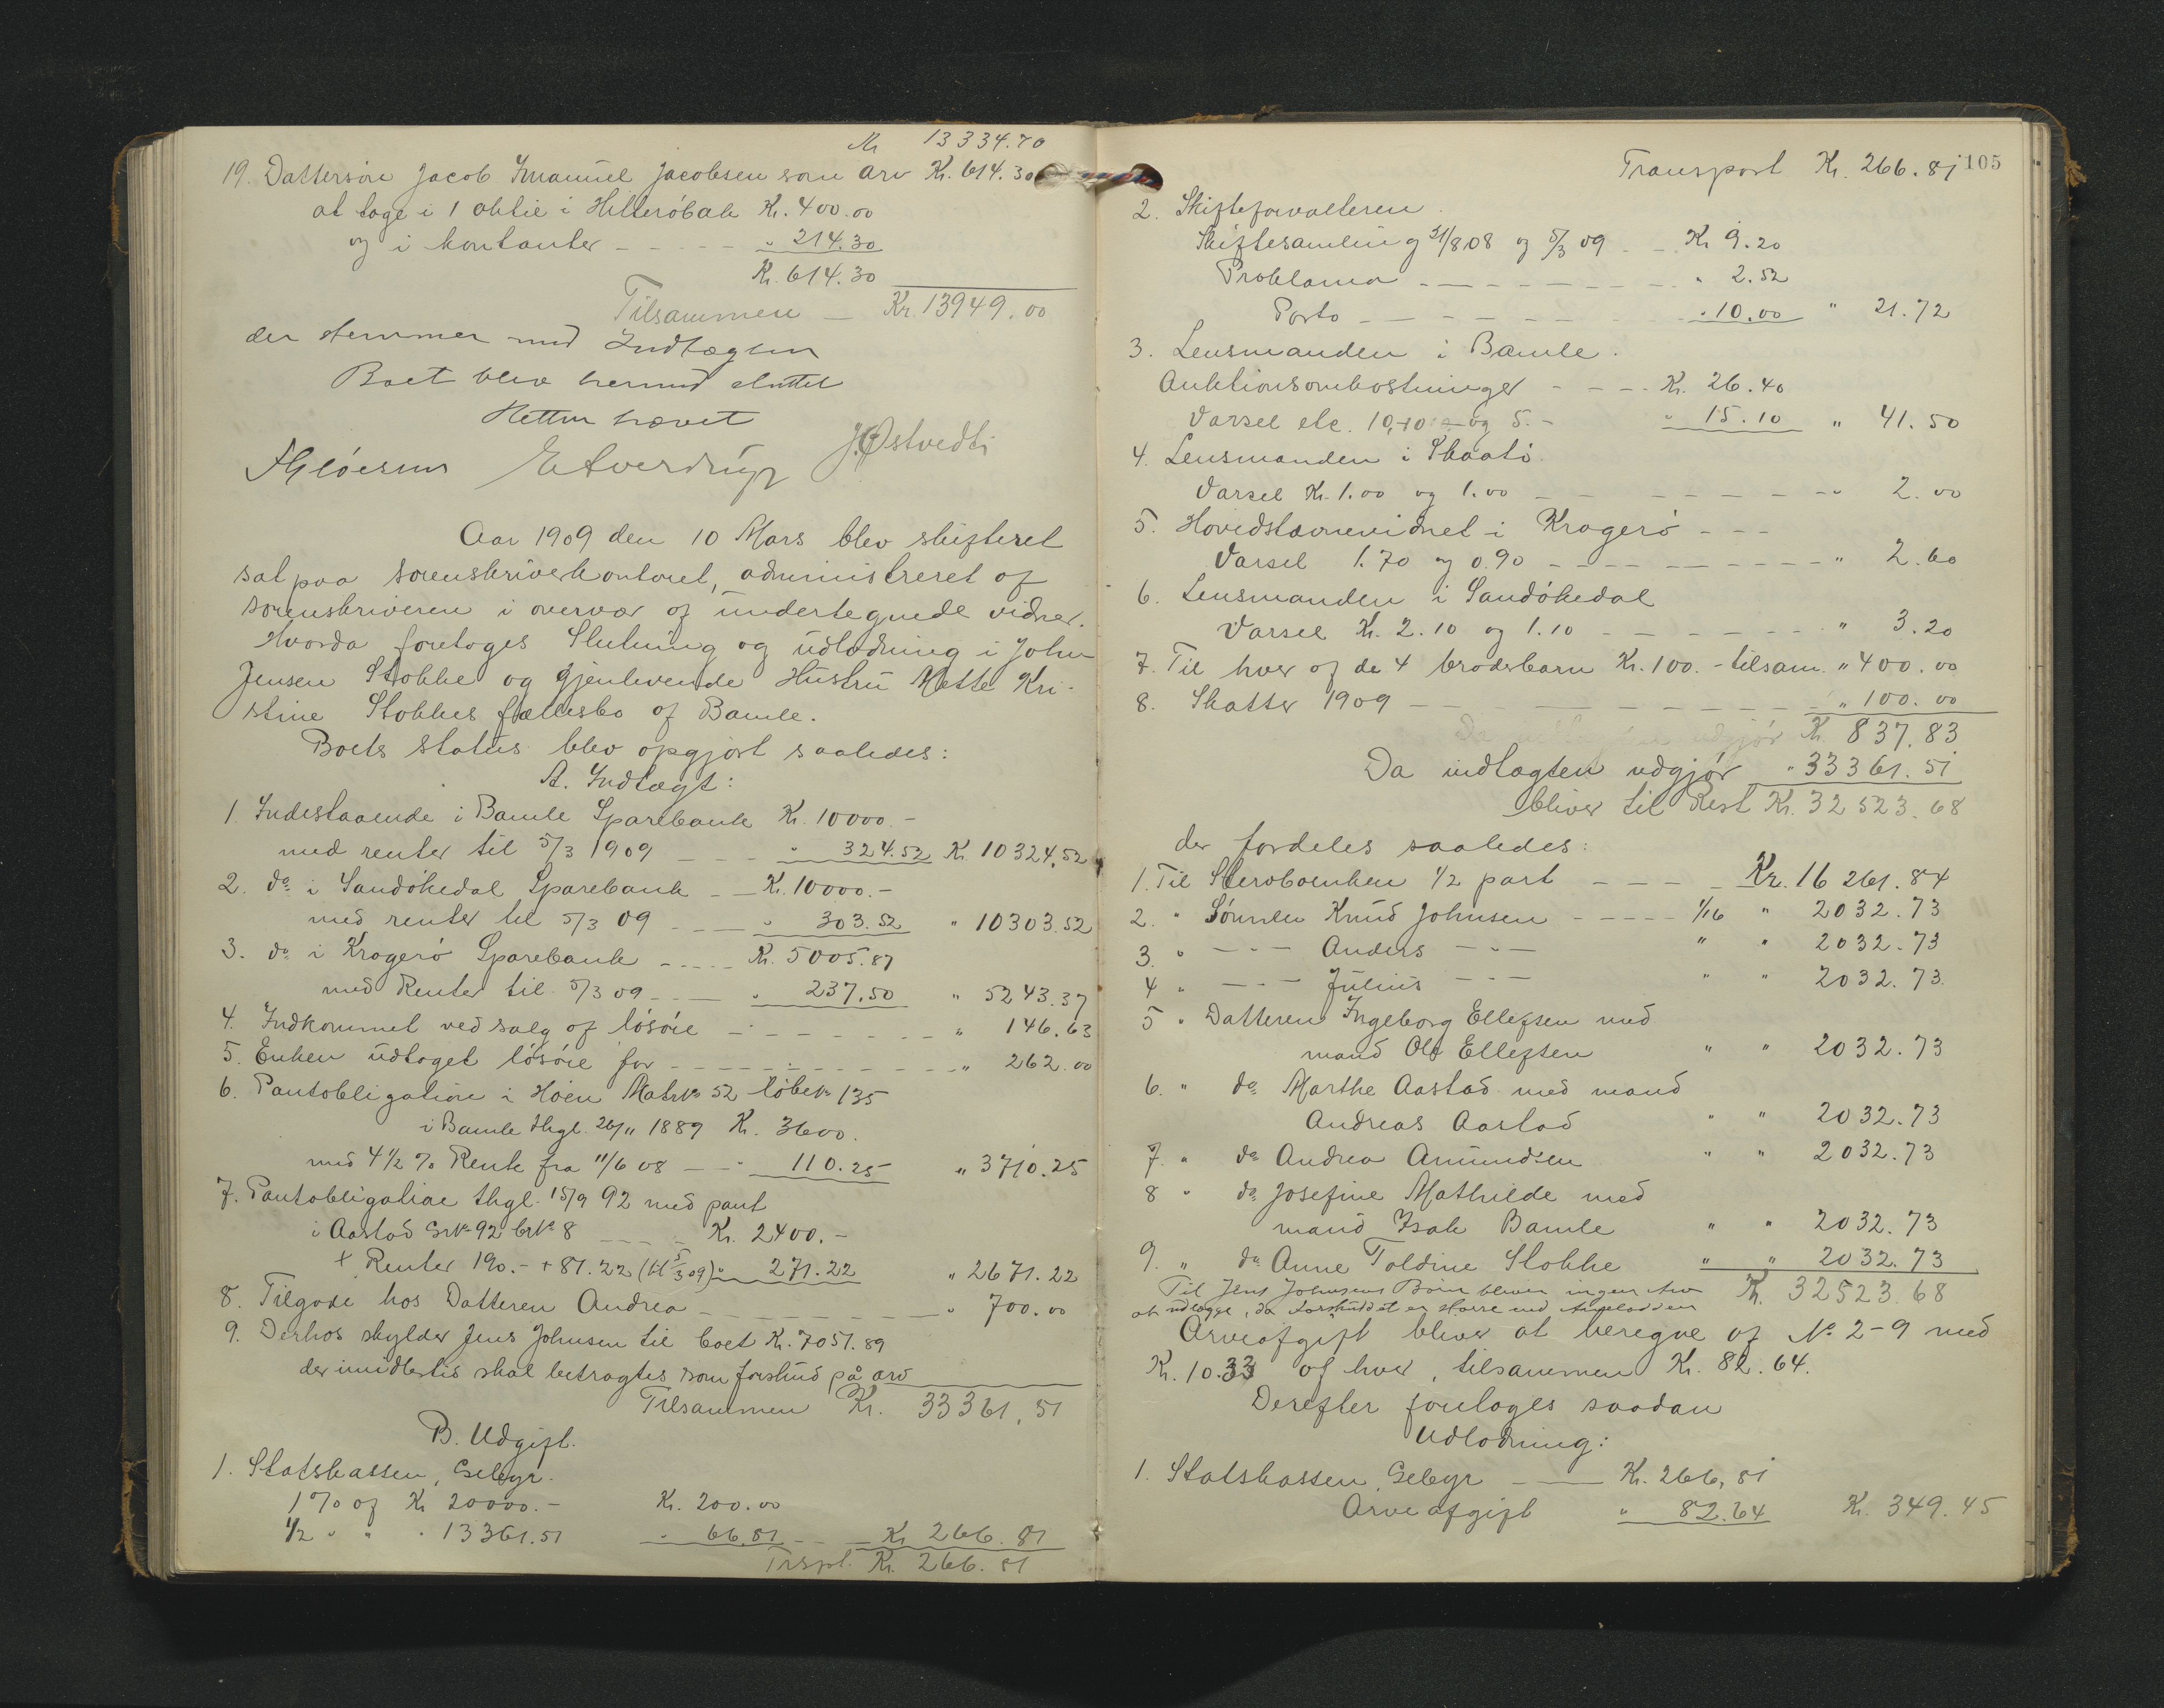 Kr 13334.70
19. Dattersøn Jacob Imanuel Jacobsen som arv Kr. 614.30
at tage i 1 aktie i Hitterøbak Kr. 400.00
og i kontanter - - - - - " 214.30
Kr. 614.30
Tilsammen — Kr. 13949.00
der stemmer med Indtægten
Boet blev hermed sluttet
Retten hævet
J. Østvedt
Aar 1909 den 10 Mars blev skifteret
sat paa sorenskriverkontoret, administreret af
sorenskriveren i overvær af undertegnede vidner.
Hvorda foretoges Slutning og udlodning i John
Jensen Stokke og gjenlevende Hustru Mette Kri-
stine Stokkes fællesbo af Bamle.
Boets status blev opgjort saaledes:
A. Indtægt:
1. Indestaaende i Bamle Sparebank Kr. 10000.-
med renter til 5/3 1909 — - - " 324.52 Kr. 10324,52
2. do i Sandøkedal Sparebank - — Kr. 10000.-
med renter til 5/3 09 - - — " 303.52 " 10303.52
3. do i Kragerø Sparebank - - - - Kr. 5005.87
med Renter til 5/3 09 - - — " 237,50 " 5243.37
4. Indkommet ved salg af løsøre - - - - - - " 146.63
5. Enken udtaget løsøre for - - - - - - - - - " 262.00
6. Pantobligation i Høen Matr No 52 løbe No 135
i Bamle thgl. 26/11 1889 Kr. 3600.
med 4 1/2 % Rente fra 11/6 08 - — " 110.25 " 3710.25
7. Pantobligation thgl. 15/9 92 med pant
i Aastad GrNo 92 brNo 8 - - - - Kr. 2400.-
+ Renter 190.- + 81.22 (til 5/3 09) " 271.22 " 2671.22
8. Tilgode hos Datteren Andrea - - - - - - - " 700.00
9. Derhos skylder Jens Johnsen til boet Kr. 7051.89
der imidlertid skal betragtes som forskud på arv
Tilsammen Kr. 33361,51
B. Udgift.
1. Statskassen, Gebyr.
1 % af Kr 20000.- Kr. 200.00
1/2 " " " 13361.51 " 66,81 - - — Kr 266.81
Trspt. Kr. 266.81
Transport Kr. 266.81 105
2. Skifteforvalteren.
Skiftesamling 21/8 08 og 5/3 09 - — Kr 9.20
Proklama - - - - - - - - - " 2.52
Porto - - - - - - - " 10.00 " 21.72
3. Lensmanden i Bamle.
Auktionsomkostninger - - - - Kr. 26.40
Varsel etc. 10,10 og 5.- " 15.10 " 41.50
4. Lensmanden i Skaatø.
Varsel Kr. 1.00 og 1.00 - - - - - - - - " 2.00
5. Hovedstævnevidnet i Kragerø - - -
Varsel 1.70 og 0.90 - - - - - - - - - - " 2.60
6. Lensmanden i Sandøkedal
Varsel Kr. 2.10 og 1.10 - - - - - - - " 3.20
7. Til hver af de 4 broderbarn Kr. 100. - tilsam. " 400.00
8. Skatter 1909 - - - - - - - - - - - " 100.00
Kr. 837.83
Da indtægten udgjør " 33361.51
bliver til Rest Kr. 32523.68
der fordeles saaledes:
1. Til Stervboenken 1/2 part - - - - Kr. 16261.84
2. " Sønnen Knud Johnsen - - - - - 1/16 " 2032.73
3. " - " - Anders - " - " " 2032.73
4 " - " - Julius - " - " " 2032.73
5 " Datteren Ingeborg Ellefsen med
mand Ole Ellefsen " " 2032.73
6. " do Marthe Aastad med mand
Andreas Aastad " " 2032.73
7. " do Andrea Amundsen " " 2032.73
8 " do Josefine Mathilde med
mand Isak Bamle " " 2032.73
9. " do Anne Toldine Stokke " " 2032.73
Til Jens Johnsens Børn bliver ingen Arv Kr. 32523.68
at udlægge, da Forskuddet er større end Arvelodden
Arveafgift bliver at beregne af No 2-9 med
Kr. 10.33 af hver, tilsammen Kr. 82.64.
Derefter foretoges saadan
Udlodning:
1. Statskassen, Gebyr - — Kr. 266,81
Arveafgift " 82.64 Kr. 349.45